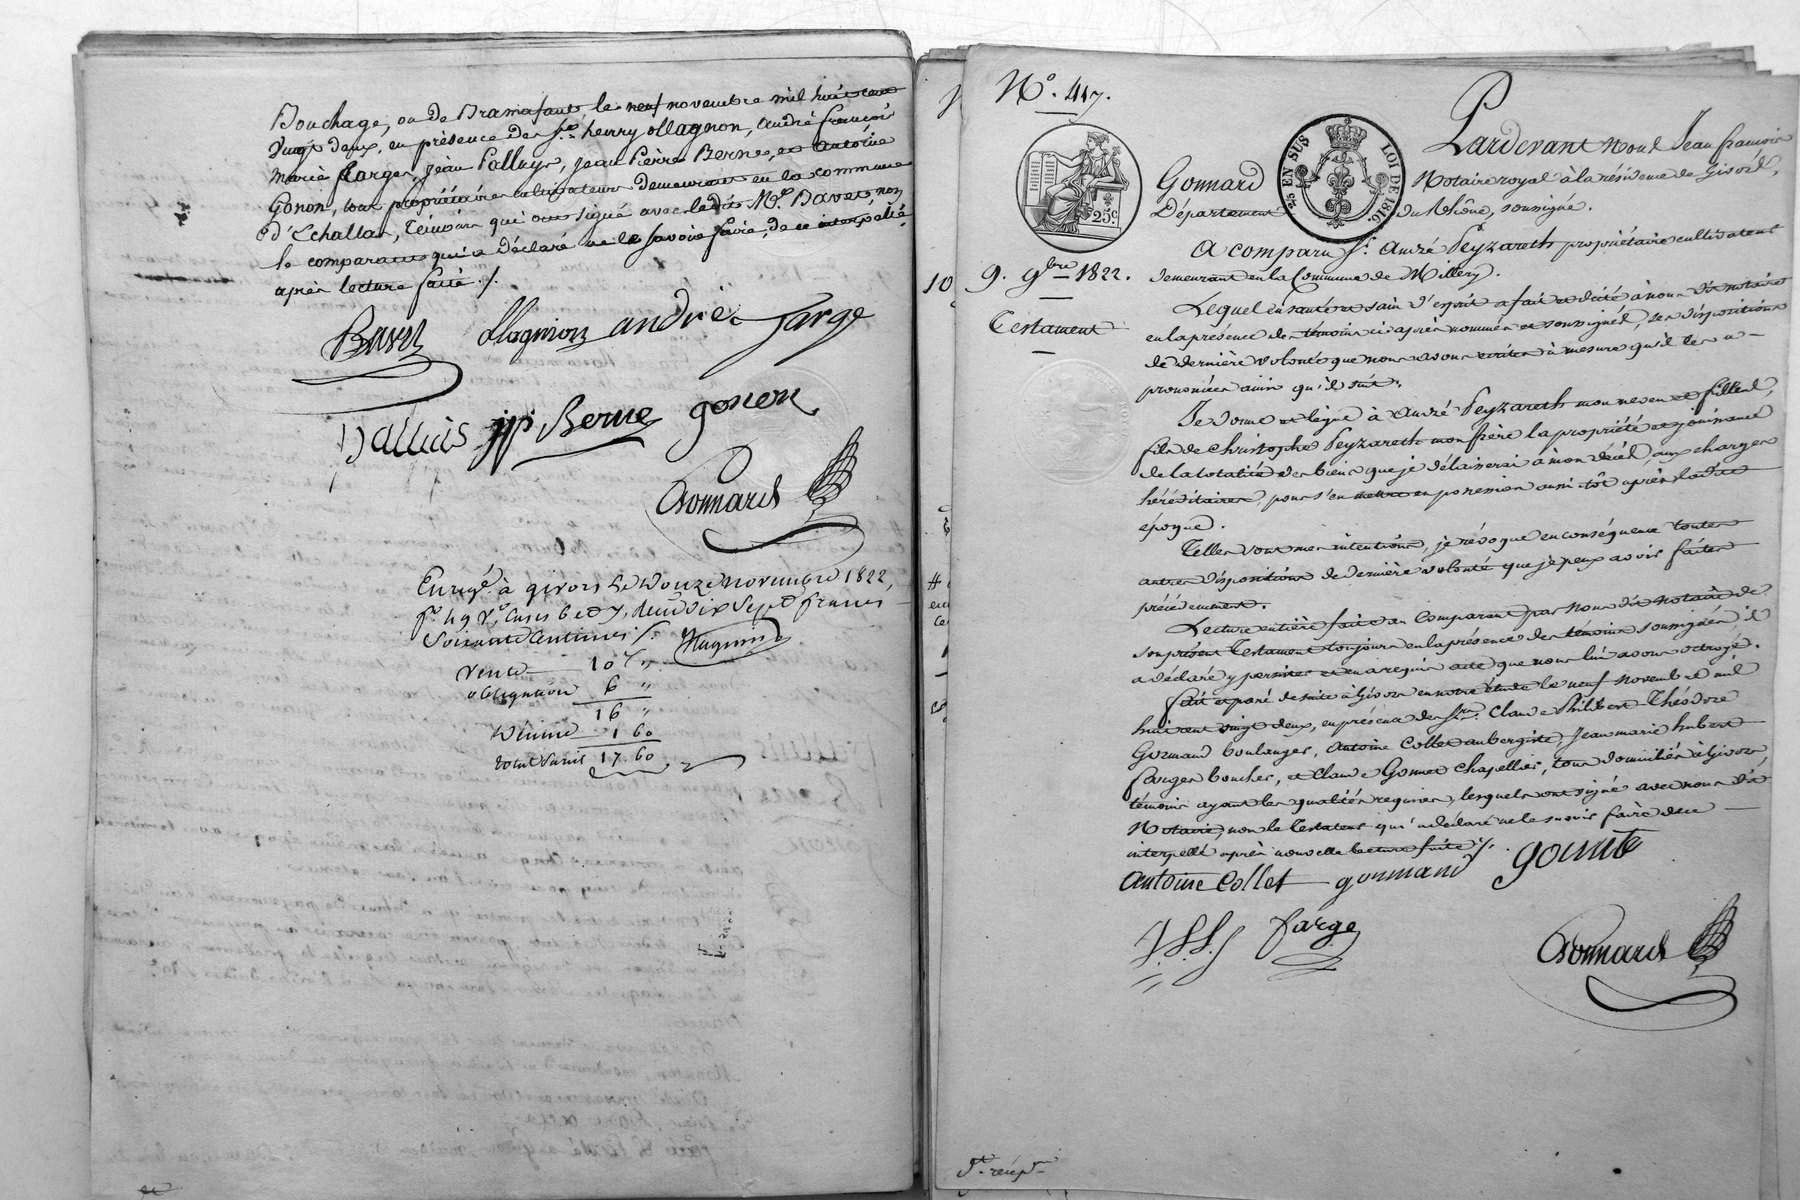 Bouchage, ou de Bramafant le neuf novembre mil huit cent
vingt deux, en présence des Srs henry ollagnon, andré françois
marie farges, jean Palluys, jean Pierre Berne, et antoine
Gonon, tous propriétaires cultivateurs demeurant en la commune
d'Echallas, témoins qui ont signé avec ledit Mr. Bavet, non
le comparant qui a déclaré ne le savoir faire, de ce interpellé
après lecture faite ./.
Bavet ollagnion andré farge
Palluis jp Berne gonon
Gonnard
Enregé à givors Le Douze novembre 1822,
fo 49 Vo, Cases 6 et 7, Reçu dix Sept francs
Soixante Centimes ./.
Vente 10 "
obligation 6 "
16 "
Décime 1 60
total Dix Sept 17.60
No. 417.
Pardevant nous Jean françois
Gonnard Notaire royal à la résidence de Givors,
Département du Rhône, soussigné.
25 EN SUS LOI DE 1816.
25c
9. 9bre 1822.
Testament
A comparu Sr. André Peyzareth propriétaire cultivateur
demeurant en la Commune de Millery.
Lequel en santé et sain d'esprit a fait et dicté à nous dit notaire
en la présence des témoins ci après nommés et soussignés, ses dispositions
de dernière volonté que nous avons écrites à mesure qu'il les a
prononcées ainsi qu'il suit.
Je donne et lègue à André Peyzareth mon neveu et filleul,
fils de Christophe Peyzareth mon frère la propriété et jouissance
de la totalité des biens que je délaisserai à mon décès, aux charges
héréditaires, pour s'en mettre en possession aussi-tôt après ladite
époque.
Telles sont mes intentions, je révoque en conséquence toutes
autres dispositions de dernière volonté que je peux avoir faites
précédemment.
Lecture entière faite au Comparant par nous dit notaire de
son présent Testament toujours en la présence des témoins soussignés il
a déclaré y persister et en a requis acte que nous lui avons octroyé.
fait et passé de suite à Givors en notre étude le neuf novembre mil
huit cent vingt deux, en présence des Srs. Claude Philibert Théodore
Gormand boulanger, Antoine Collet aubergiste, Jean marie hubert
farges boucher, et Claude Gomet Chapellier, tous domiciliés à Givors,
témoins ayant les qualités requises, lesquels ont signé avec nous dit
Notaire, non le Testateur qui a déclaré ne le savoir faire de ce
interpellé après nouvelle lecture faite ./.
Antoine Collet gormand
farge
Gonnard